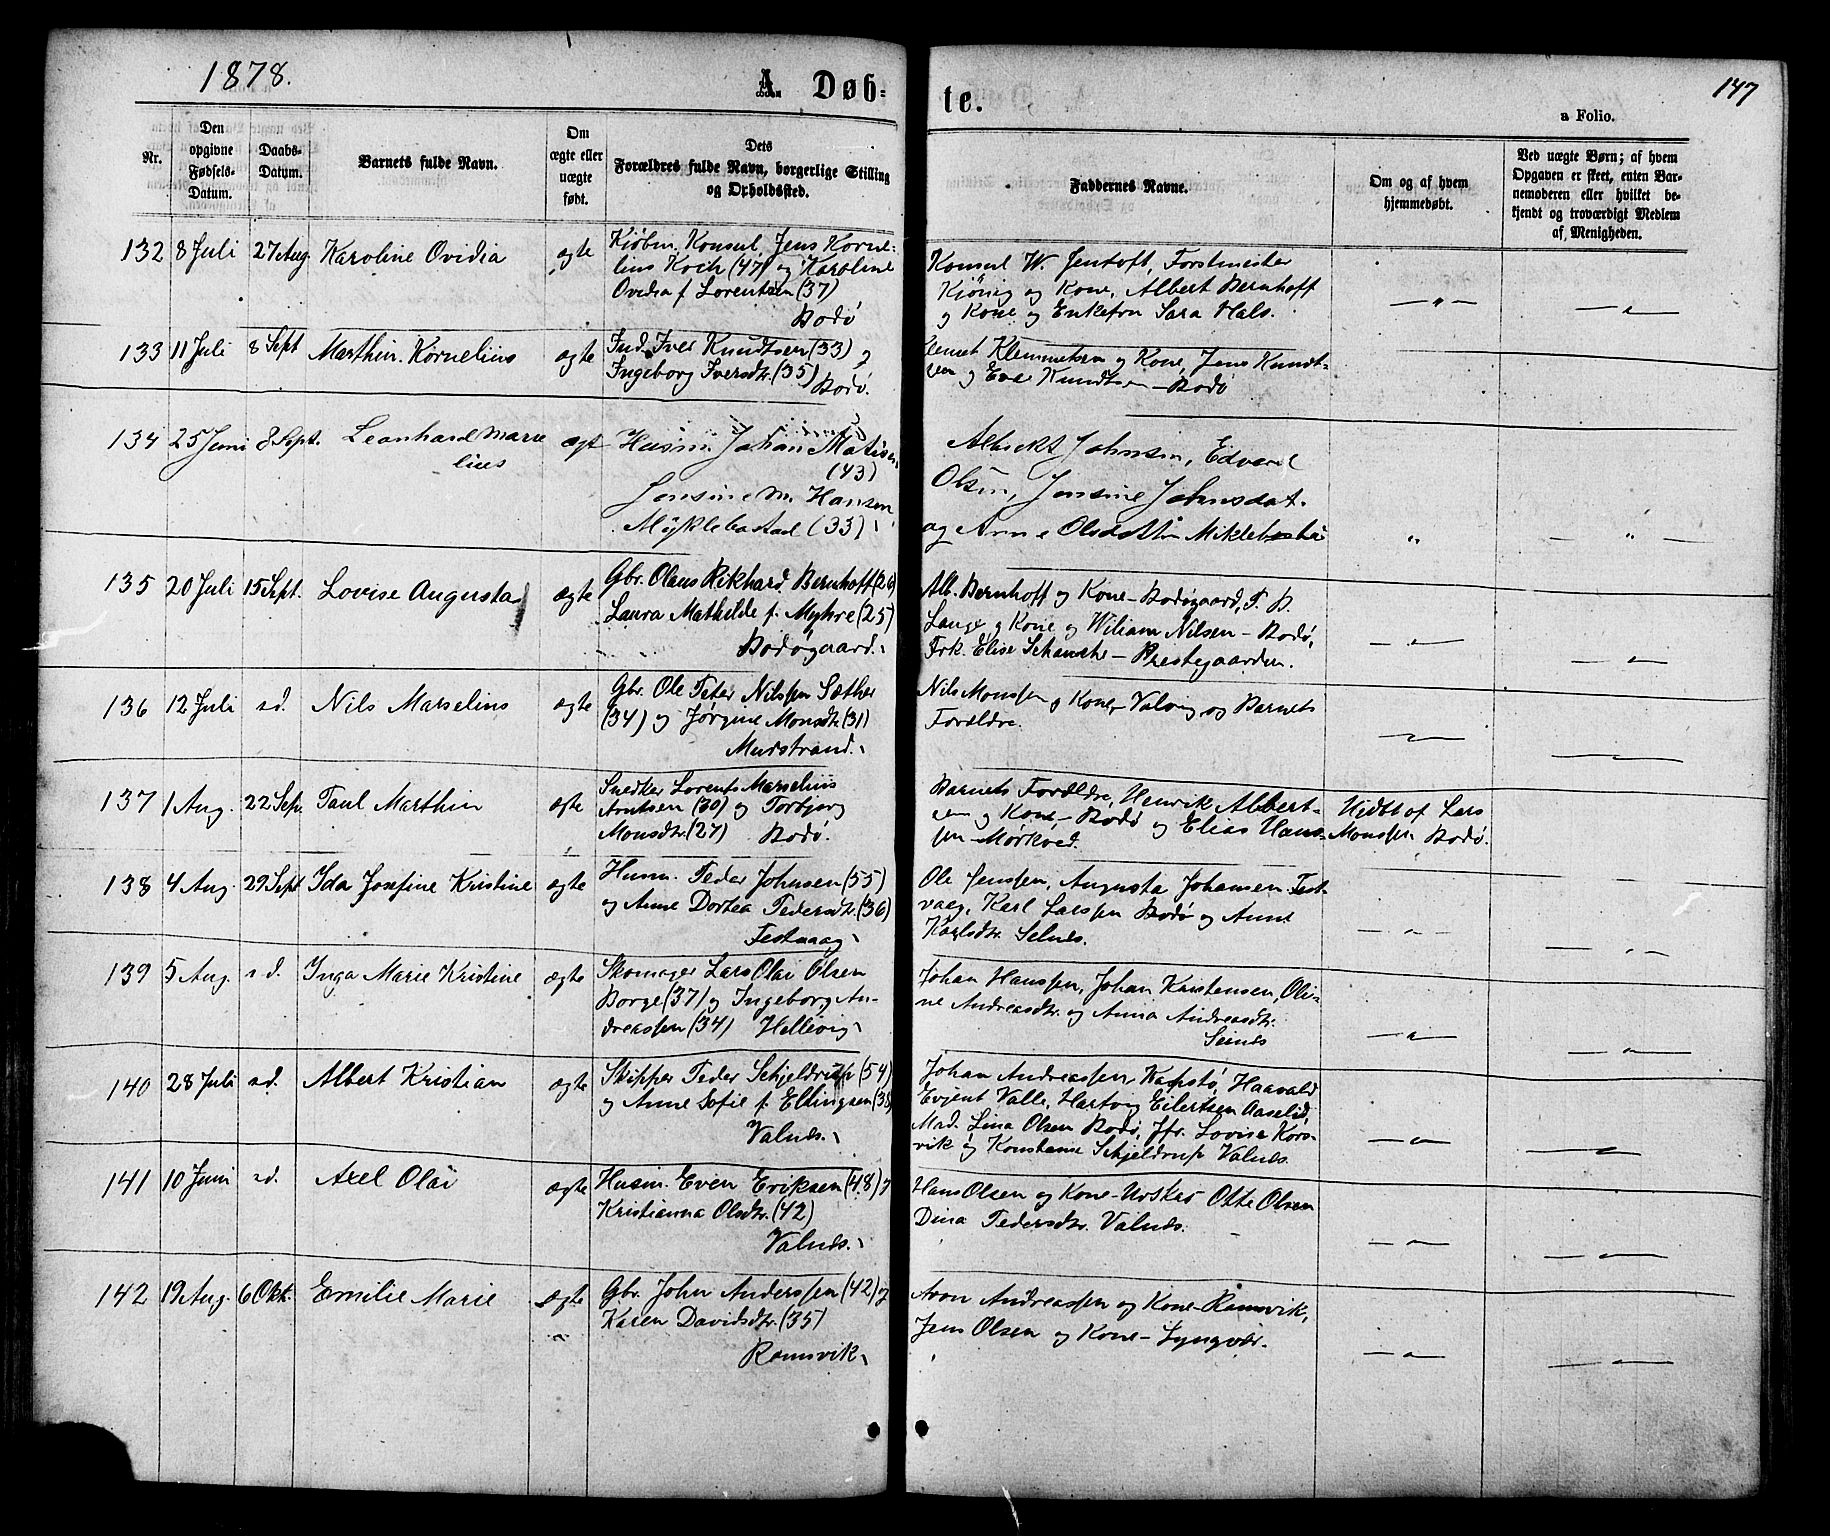 1878.
A. Døb-
te.
147
a Folio.
Nr.
Den opgivne Fødsels-Datum.
Daabs-Datum.
Barnets fulde Navn.
Om ægte eller uægte født.
Dets Forældres fulde Navn, borgerlige Stilling og Opholdssted.
Faddernes Navne.
Om og af hvem hjemmedøbt.
Ved uægte Børn; af hvem Opgaven er skeet, enten Barnemoderen eller hvilket bekjendt og troværdigt Medlem af Menigheden.
132 8 Juli 27 Aug. Karoline Ovidia ægte
Kjøbm. Konsul Jens Korne-
lius Koch (47) og Karoline
Ovidia f. Lorentzen (37)
Bodø
Konsul W. Jentoft, Forstmester
Kjönig og Kone, Albert Bernhoff
og Kone og Enkefru Sara Hals.
133 11 Juli 8 Sept Marthin Kornelius ægte
Ind. Iver Knudtsen (33) og
Ingeborg Iversdtr. (35)
Bodø.
Klemmetsen og Kone, Jens Knudt-
sen og Eva Knudtsen - Bodø
134 25 Juni 8 Sept. Leonhard Marie ægt
lius
Husm. Johan Matisen
(43)
Jensine M. Hansen
Myklebostad (33)
Albrekt Johnsen, Edvard
Olsen, Jensine Johnsdat.
og Anne Olsdatter
135 20 Juli 15 Sept. Lovise Augusta ægte
Gbr. Olaus Rikhard Bernhoff (26)
Laura Mathilde f. Myhre (25)
Bodøgaard.
Alb. Bernhoff og Kone - Bodøgaard, F. B.
Lange og Kone og Wiliam Nilsen - Bodø,
Frk. Elise Schanche - Prestegaarden.
136 12 Juli s.d. Nils Marselius ægte
Gbr. Ole Peter Nilssen Sæther
(34) og Jørgine Monsdtr. (31)
Mudstrand.
Nils Monssen og Kone - Valvig og Barnets
Forældre.
137 1 Aug. 22 Sep. Paul Marthin ægte
Snedker Lorents Marselius
Arntsen (30) og Torbjørg
Monsdtr. (27) Bodø.
Barnets Forældre, Henrik Albert-
sen og Kone - Bodø og Elias Hans-
sen - Mørkved.
Hjdbt af Lars
Monssen Bodø.
138 4 Aug. 29 Sept Ida Josefine Kristine ægte
Husm. Peder Johnsen (55)
og Anne Dortea Pedersdtr. (36)
Festvaag
Ole Jenssen, Augusta Johansen Fest-
vaag, Karl Larssen Bodø og Anne
Karlsdtr. Selnes.
139 5 Aug. s.d. Inga Marie Kristine ægte
Skomager Lars Olai Olsen
Borge (37) og Ingeborg An-
dreassen (34) Hellevig
Johan Hanssen, Johan Karstensen, Oli-
ne Andreasdtr. og Anna Andreasdtr.
Seines
140 28 Juli s.d. Albert Kristian ægte
Skipper Peder Schjeldrup (54)
og Anne Sofie f. Ellingsen (38)
Valnes.
Johan Andreassen Kapstø, Haavald
Evjent Valle, Hartvig Eilertsen Aaselid,
Mad. Lina Olsen Bodø, Jfr. Lovise Kors-
vik og Konstanse Schjeldrup Valnes.
141 10 Juni s.d. Axel Olai ægte
Husm. Even Eriksen (48) og
Kristianna Olsdtr. (42)
Valnes.
Hans Olsen og Kone - Otte Olsen
Dina Pedersdtr. Valnes.
142 19 Aug. 6 Okt. Emilie Marie ægte
Gbr. John Anderssen (42) og
Karen Davidsdtr. (35)
Ramsvik
Aron Andreassen og Kone - Ramsvik,
Jens Olsen og Kone - Lyngvær.